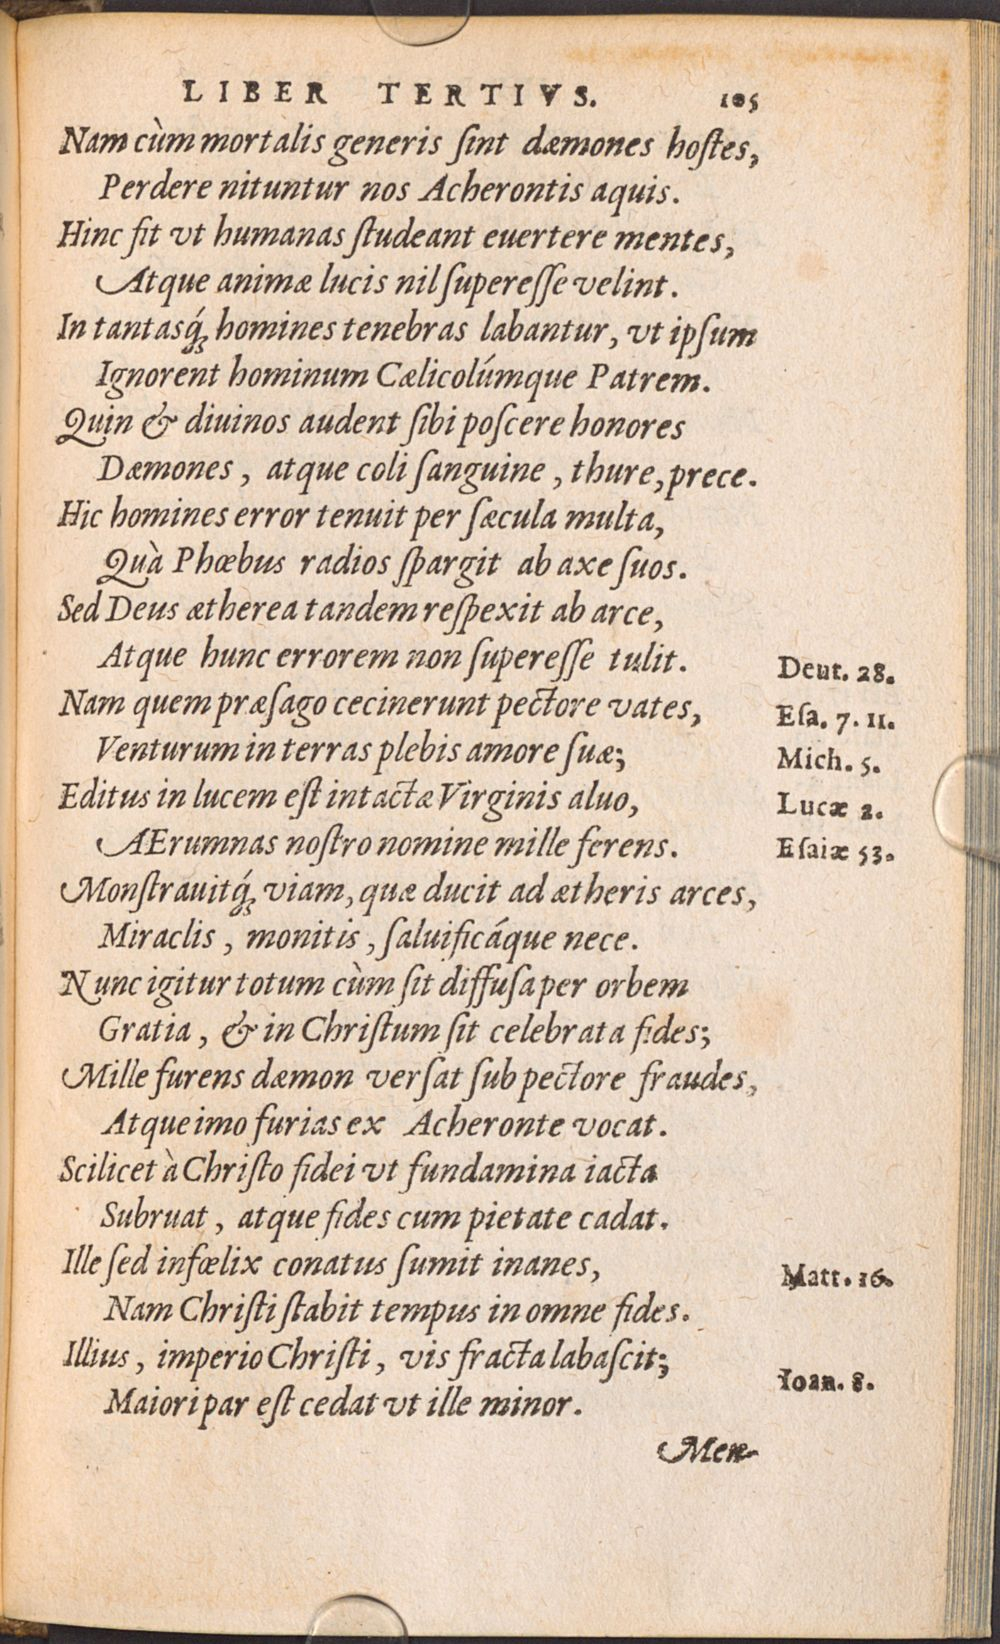 LIBER TERTIVS. 105
Nam cùm mortalis generis ſint dæmones hoſtes,
Perdere nituntur nos Acherontis aquis.
Hinc fit vt humanas ſtudeant euertere mentes,
Atque animæ lucis nil ſupereſſe velint.
In tantasq́ꝫ homines tenebras labantur, vt ipſum
Ignorent hominum Cælicolúmque Patrem.
Quin & diuinos audent ſibi poſcere honores
Dæmones, atque coli ſanguine, thure, prece.
Hic homines error tenuit per ſæcula multa,
Quà Phœbus radios ſpargit ab axe ſuos.
Sed Deus ætherea tandem reſpexit ab arce,
Atque hunc errorem non ſupereſſe tulit.
Deut. 28.
Nam quem præſago cecinerunt pectore vates,
Eſa. 7. 11.
Venturum in terras plebis amore ſuæ;
Mich. 5.
Editus in lucem eſt intactæ Virginis aluo,
Lucæ 2.
AErumnas noſtro nomine mille ferens.
Eſaiæ 53.
Monſtrauitq́ꝫ viam, quæ ducit ad ætheris arces,
Miraclis, monitis, ſaluificáque nece.
Nunc igitur totum cùm ſit diffuſa per orbem
Gratia, & in Chriſtum ſit celebrata fides;
Mille furens dæmon verſat ſub pectore fraudes,
Atque imo furias ex Acheronte vocat.
Scilicet à Chriſto fidei vt fundamina iacta
Subruat, atque fides cum pietate cadat.
Ille ſed infœlix conatus ſumit inanes,
Matt. 16.
Nam Chriſti ſtabit tempus in omne fides.
Illius, imperio Chriſti, vis fracta labaſcit;
Ioan. 8.
Maiori par eſt cedat vt ille minor.
Men-